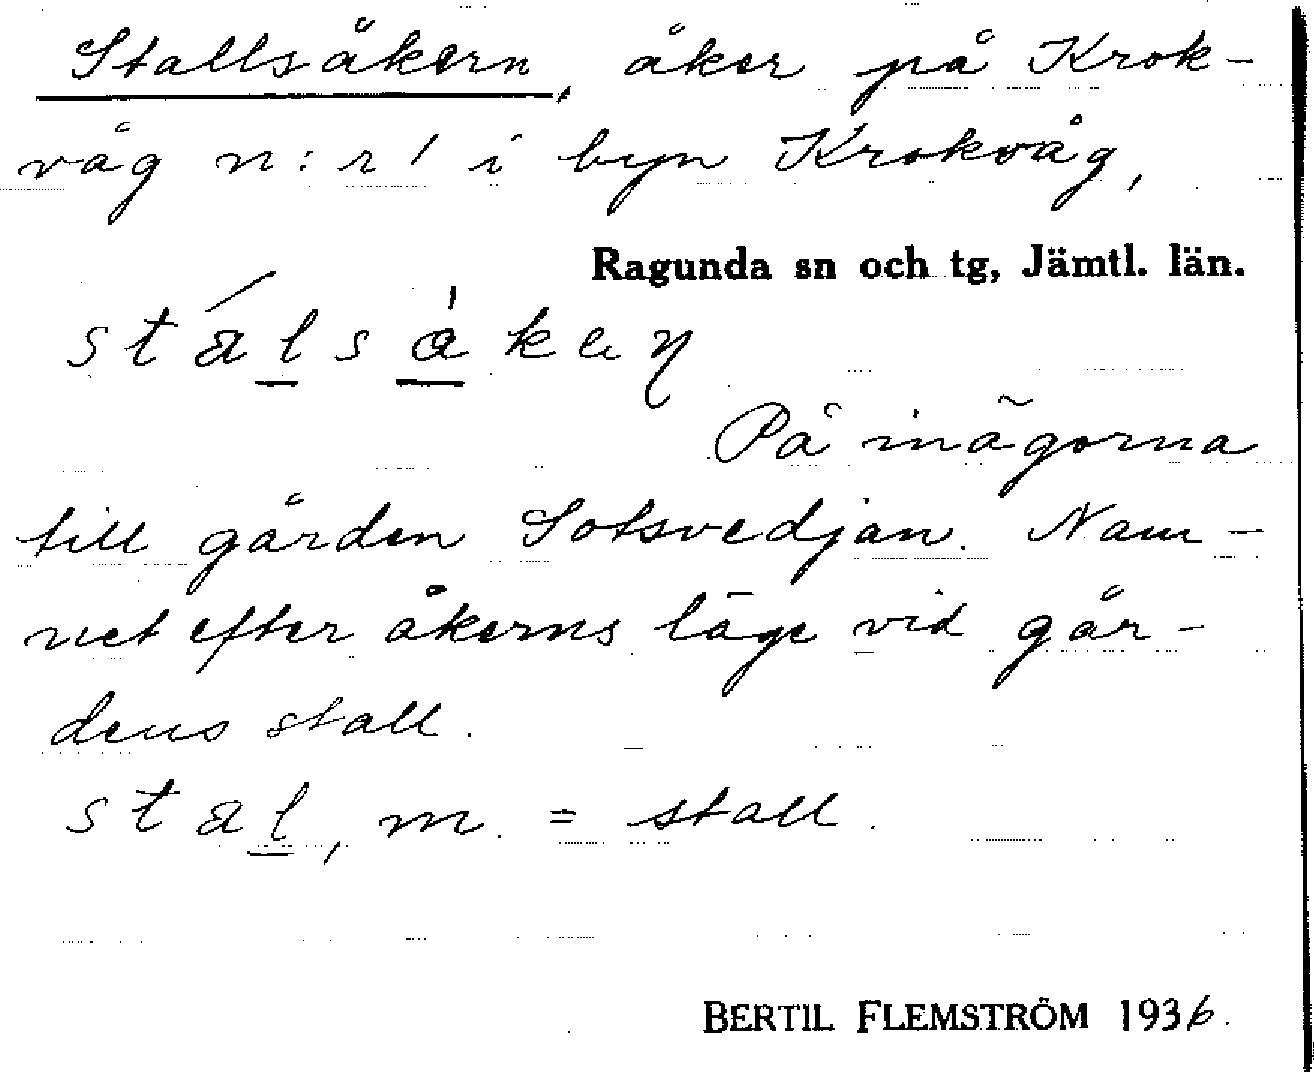 Stallsåkern, åker på Krok-
våg n:r 1 i byn Krokvåg,
Ragunda sn och tg, Jämtl. län.
På inägorna
till gården Sotsvedjan. Nam-
net efter åkerns läge vid går-
dens stall.
stal, m. = stall.
BERTIL FLEMSTRÖM 1936.